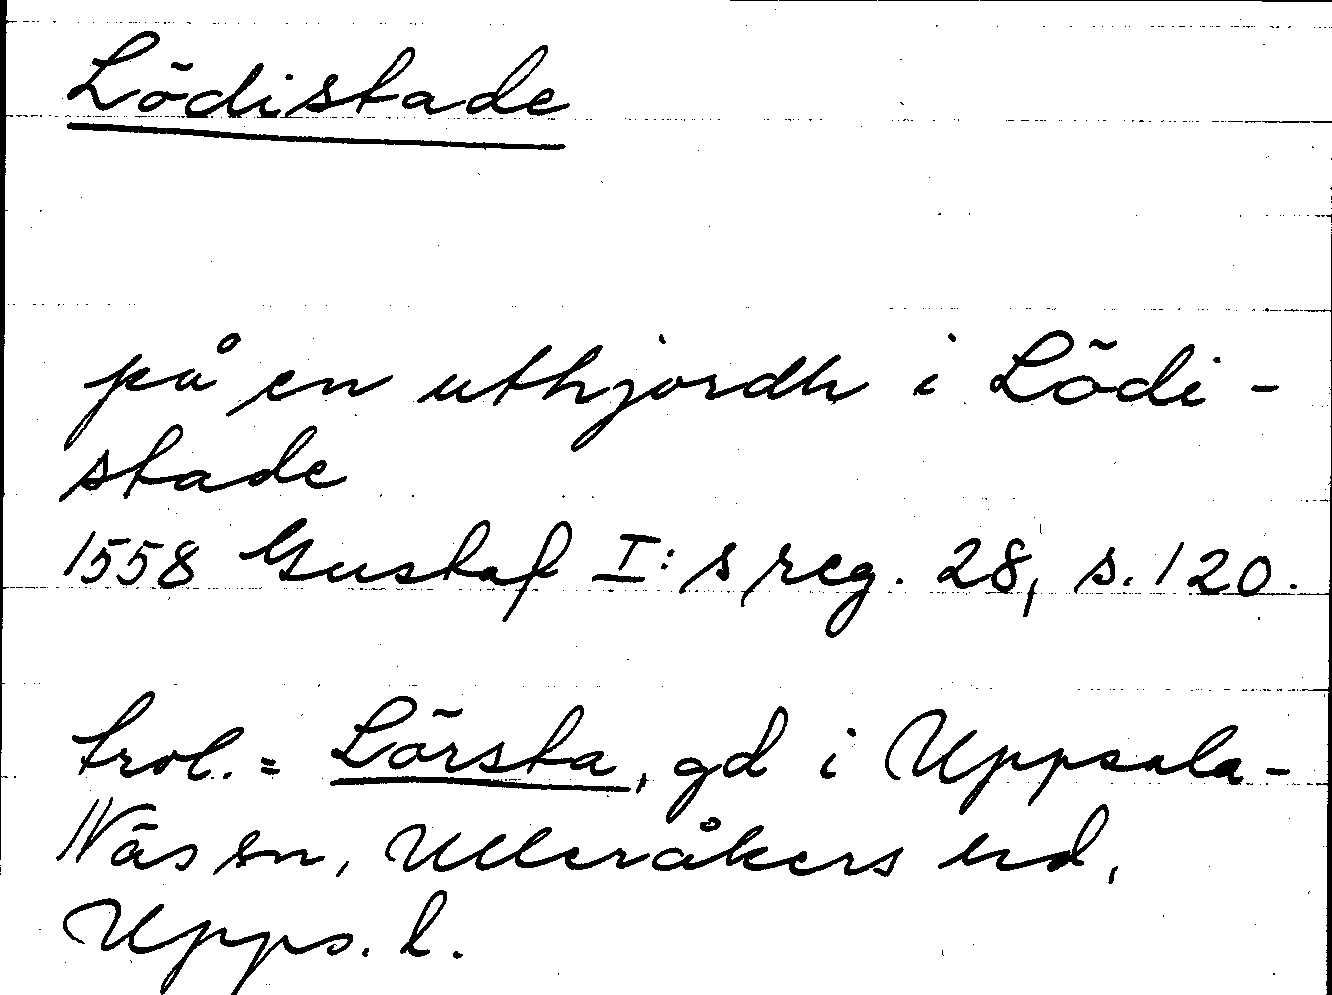 Lödistade
på en uthjordh i Lödi-
stade
1558 Gustaf I:s reg. 28, s. 120.
trol. = Lörsta, gd i Uppsala-
Näs sn, Ulleråkers hd,
Upps. l.